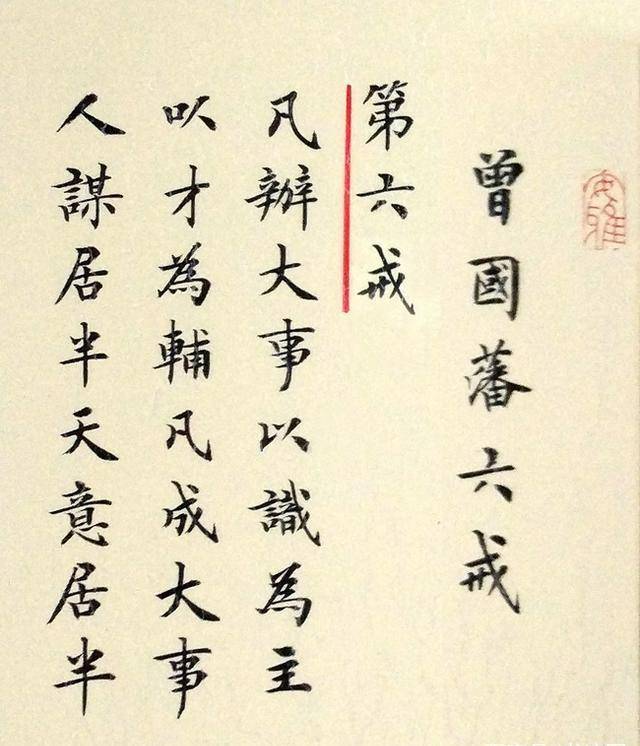 安雅
曾國藩六戒
第六戒
凡辦大事以識為主
以才為輔凡成大事
人謀居半天意居半